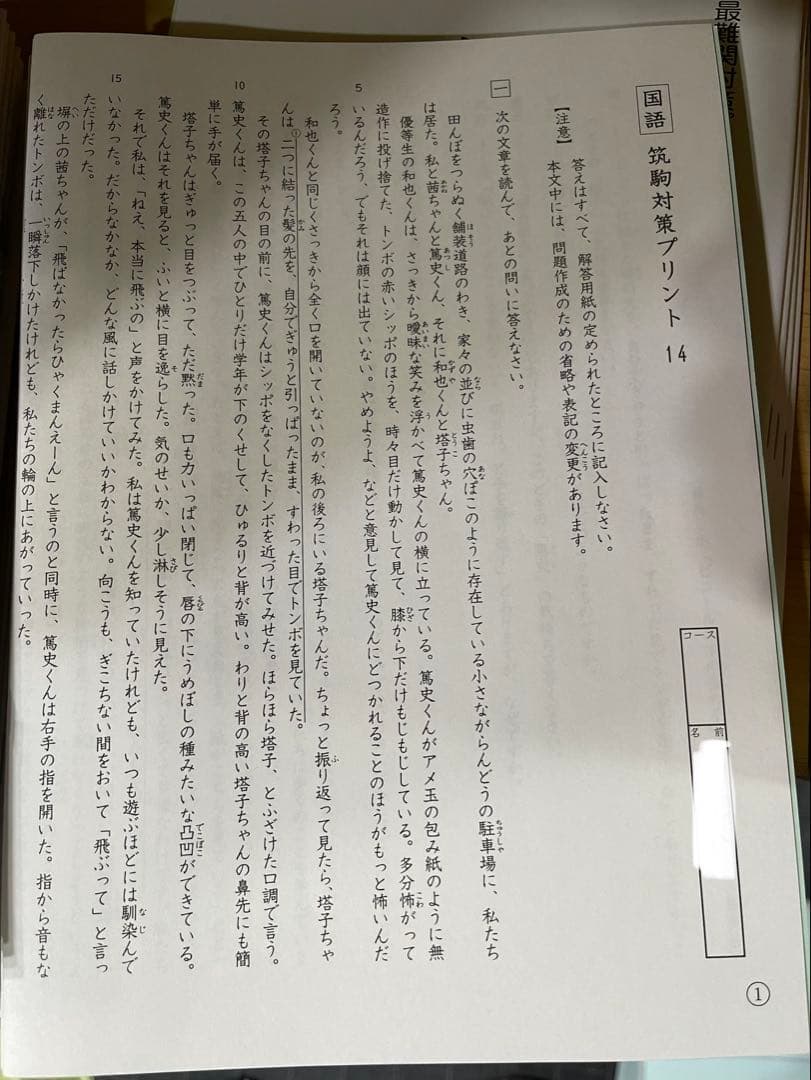 最難関対策
国語 筑駒対策プリント 14
コース
名前
【注意】 答えはすべて、解答用紙の定められたところに記入しなさい。
本文中には、問題作成のための省略や表記の変更があります。
一 次の文章を読んで、あとの問いに答えなさい。
田んぼをつらぬく舗装道路のわき、家々の並びに虫歯の穴ぼこのように存在している小さながらんどうの駐車場に、私たち
は居た。私と茜ちゃんと篤史くん、それに和也くんと塔子ちゃん。
優等生の和也くんは、さっきから曖昧な笑みを浮かべて篤史くんの横に立っている。篤史くんがアメ玉の包み紙のように無
5 造作に投げ捨てた、トンボの赤いシッポのほうを、時々目だけ動かして見て、膝から下だけもじもじしている。多分怖がって
いるんだろう、でもそれは顔には出ていない。やめようよ、などと意見して篤史くんにどつかれることのほうがもっと怖いんだ
ろう。
和也くんと同じくさっきから全く口を開いていないのが、私の後ろにいる塔子ちゃんだ。ちょっと振り返って見たら、塔子ちゃ
んは①二つに結った髪の先を、自分でぎゅうと引っぱったまま、すわった目でトンボを見ていた。
その塔子ちゃんの目の前に、篤史くんはシッポをなくしたトンボを近づけてみせた。ほらほら塔子、とふざけた口調で言う。
10 篤史くんは、この五人の中でひとりだけ学年が下のくせして、ひゅるりと背が高い。わりと背の高い塔子ちゃんの鼻先にも簡
単に手が届く。
塔子ちゃんはぎゅっと目をつぶって、ただ黙った。口も力いっぱい閉じて、唇の下にうめぼしの種みたいな凸凹ができている。
篤史くんはそれを見ると、ふいと横に目を逸らした。気のせいか、少し淋しそうに見えた。
それで私は、「ねえ、本当に飛ぶの」と声をかけてみた。私は篤史くんを知っていたけれども、いつも遊ぶほどには馴染んで
15 いなかった。だからなかなか、どんな風に話しかけていいかわからない。向こうも、ぎこちない間をおいて「飛ぶって」と言っ
ただけだった。
塀の上の茜ちゃんが、「飛ばなかったらひゃくまんえーん」と言うのと同時に、篤史くんは右手の指を開いた。指から音もな
く離れたトンボは、一瞬落下しかけたけれども、私たちの輪の上にあがっていった。
①